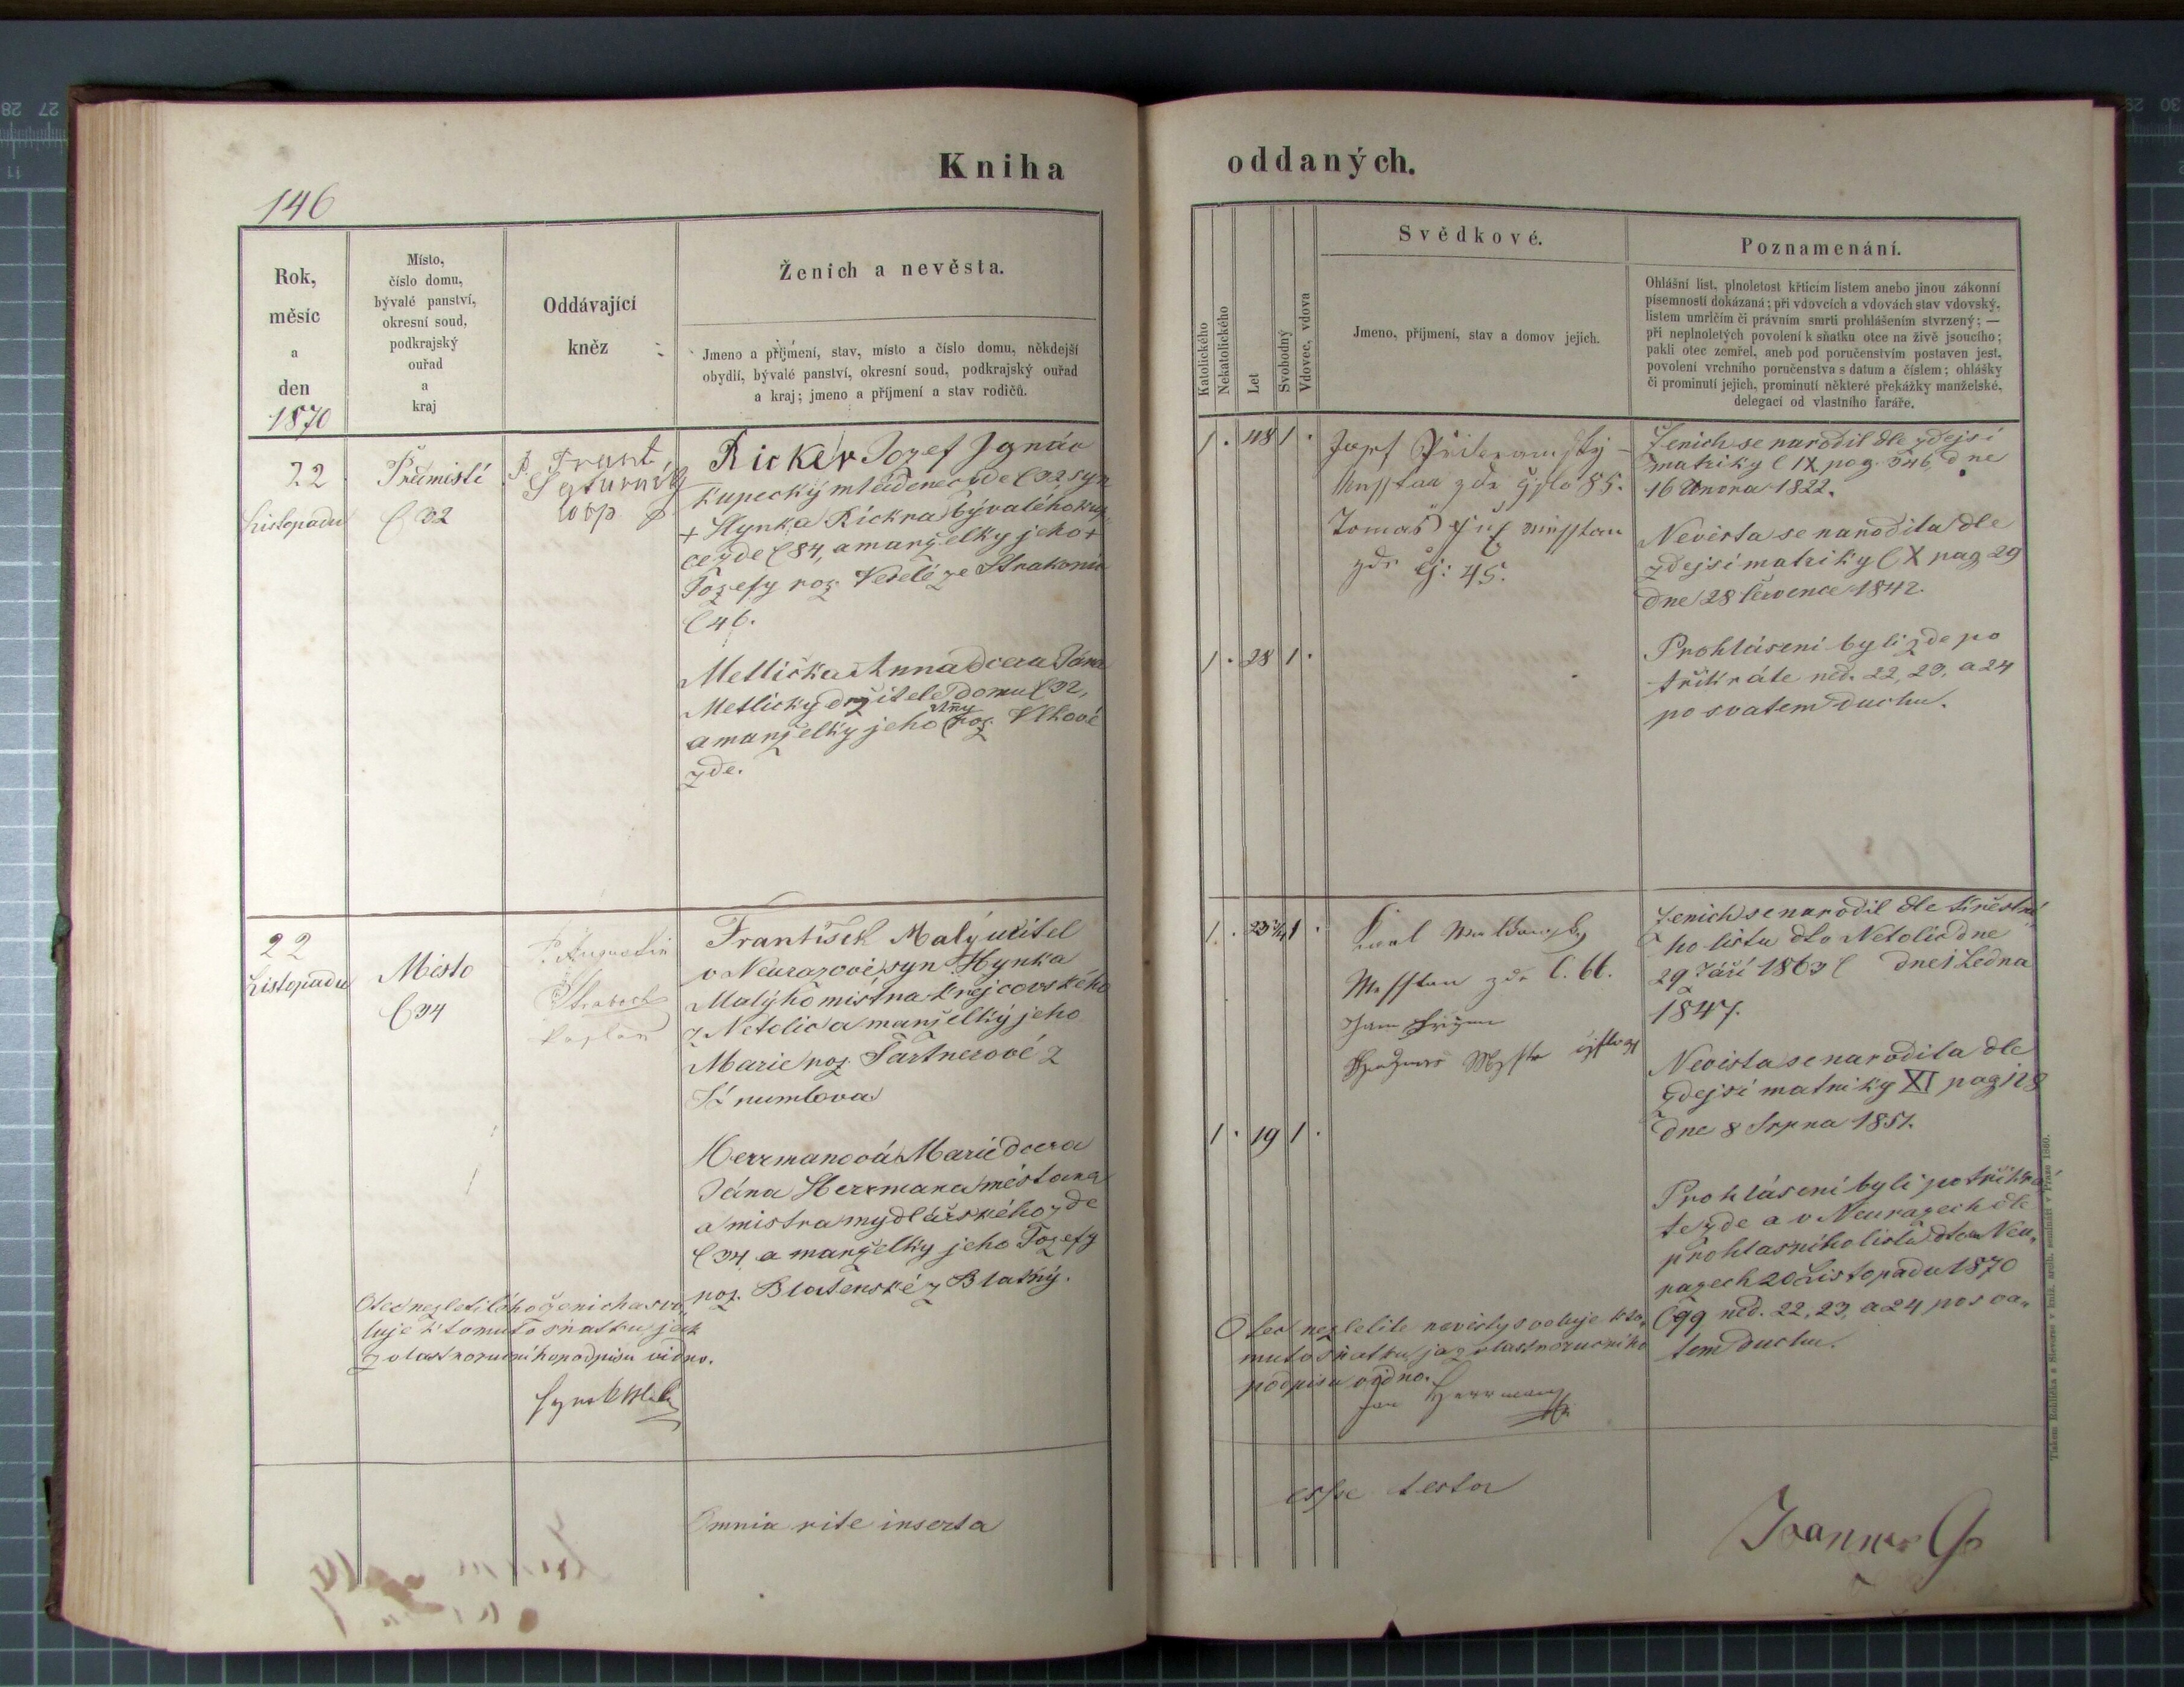 Kniha oddaných.
146
Rok,
měsíc
a
den
1870
Místo,
číslo domu,
bývalé panství,
okresní soud,
podkrajský
ouřad
a
kraj
Oddávající
kněz
Ženich a nevěsta.
Jmeno a příjmení, stav, místo a číslo domu, někdejší
obydlí, bývalé panství, okresní soud, podkrajský ouřad
a kraj; jmeno a příjmení a stav rodičů.
Katolického
Nekatolického
Let
Svobodný
Vdovec, vdova
Svědkové.
Jmeno, příjmení, stav a domov jejich.
Poznamenání.
Ohlášní list, plnoletost křticím listem anebo jinou zákonní
písemností dokázaná; při vdovcích a vdovách stav vdovský,
listem umrlčím či právním smrti prohlášením stvrzený; —
při neplnoletých povolení k sňatku otce na živě jsoucího;
pakli otec zemřel, aneb pod poručenstvím postaven jest,
povolení vrchního poručenstva s datum a číslem; ohlášky
či prominutí jejich, prominutí některé překážky manželské,
delegací od vlastního faráře.
22
Listopadu
Předmistí
C 32
P. Frant
Ricker Jozef Ignác
kupecký mládenec zde C 32 syn
+ Hynka Rickra bývalého kup
ce zde C 84, a manželky jeho +
Jozefy roz. Veselé ze Strakonic
C 46.
Metlička Anna dcera Jana
Metličky držitele domu C 32,
a manželky jeho Anny roz. Vlkové
zde.
1 . 48 1 .
1 . 28 1 .
Josef
zde 85.
Tomáš
zde 45.
Ženich se narodil dle zdejsí
matriky C IX pag. 346, dne
16 Února 1822.
Nevěsta se narodila dle
zdejsí matriky C X pag 29
dne 28 Července 1842.
Prohlásení byli zde po
třikráte ned. 22, 23, a 24
po svatem duchu.
22
Listopadu
Místo
C 34
P. Augustin
Kaplan
František Malý učitel
v Neurazově, syn Hynka
Malýho mistra krejcovského
z Netolic a manželký jeho
Marie roz. Partnerové z
Krumlova
Herrmanová Marie dcera
Jána Herrmana městana
a mistra mydlářského zde
C 34 a manželky jeho Jozefy
roz. Blatenské z Blatný.
Otec nezletilého ženicha svo
luje k tomuto sňatku jak
z vlastnorucního podpisu vidno.
1 . 23 1 .
1 . 19 1 .
zde C. 66.
Jan
Ženich se narodil dle křestní
ho listu dto Netolic dne
29 Září 1863 C dne 1 Ledna
1847.
Nevista se narodila dle
zdejsí matriky XI pag 128
dne 8 Srpna 1851.
Prohlásení byli po třikrá
te zde a v Neurazech dle
prohlasního listu dto Neu,
razech 20 Listopadu 1870
C 99 ned. 22, 23, a 24 po sva,
tem duchu.
Otec nezletile nevěsty svoluje k to,
muto sňatku jak z vlastnorucního
podpisu vidno.
Jan Herrmann
Omnia rite inserta
esse testor
Joannes